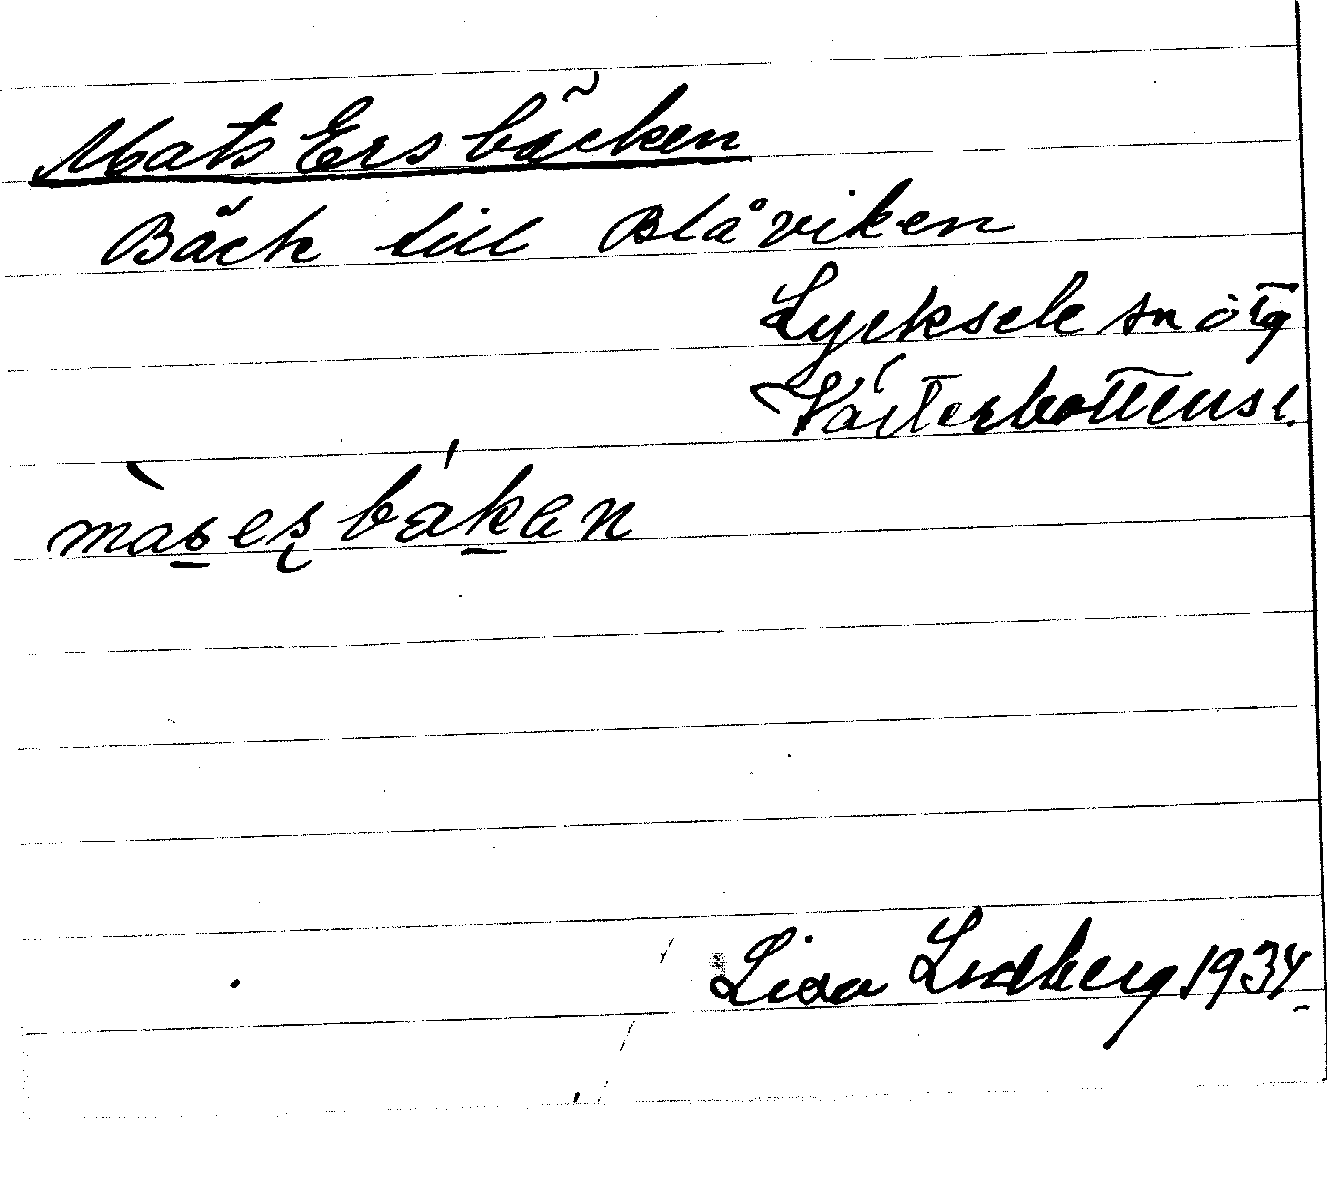 Mats Ersbäcken
Bäck till Blåviken
Lycksele sn ötg
Västerbottens l.
màsesbákan
Lisa Lidberg 1934